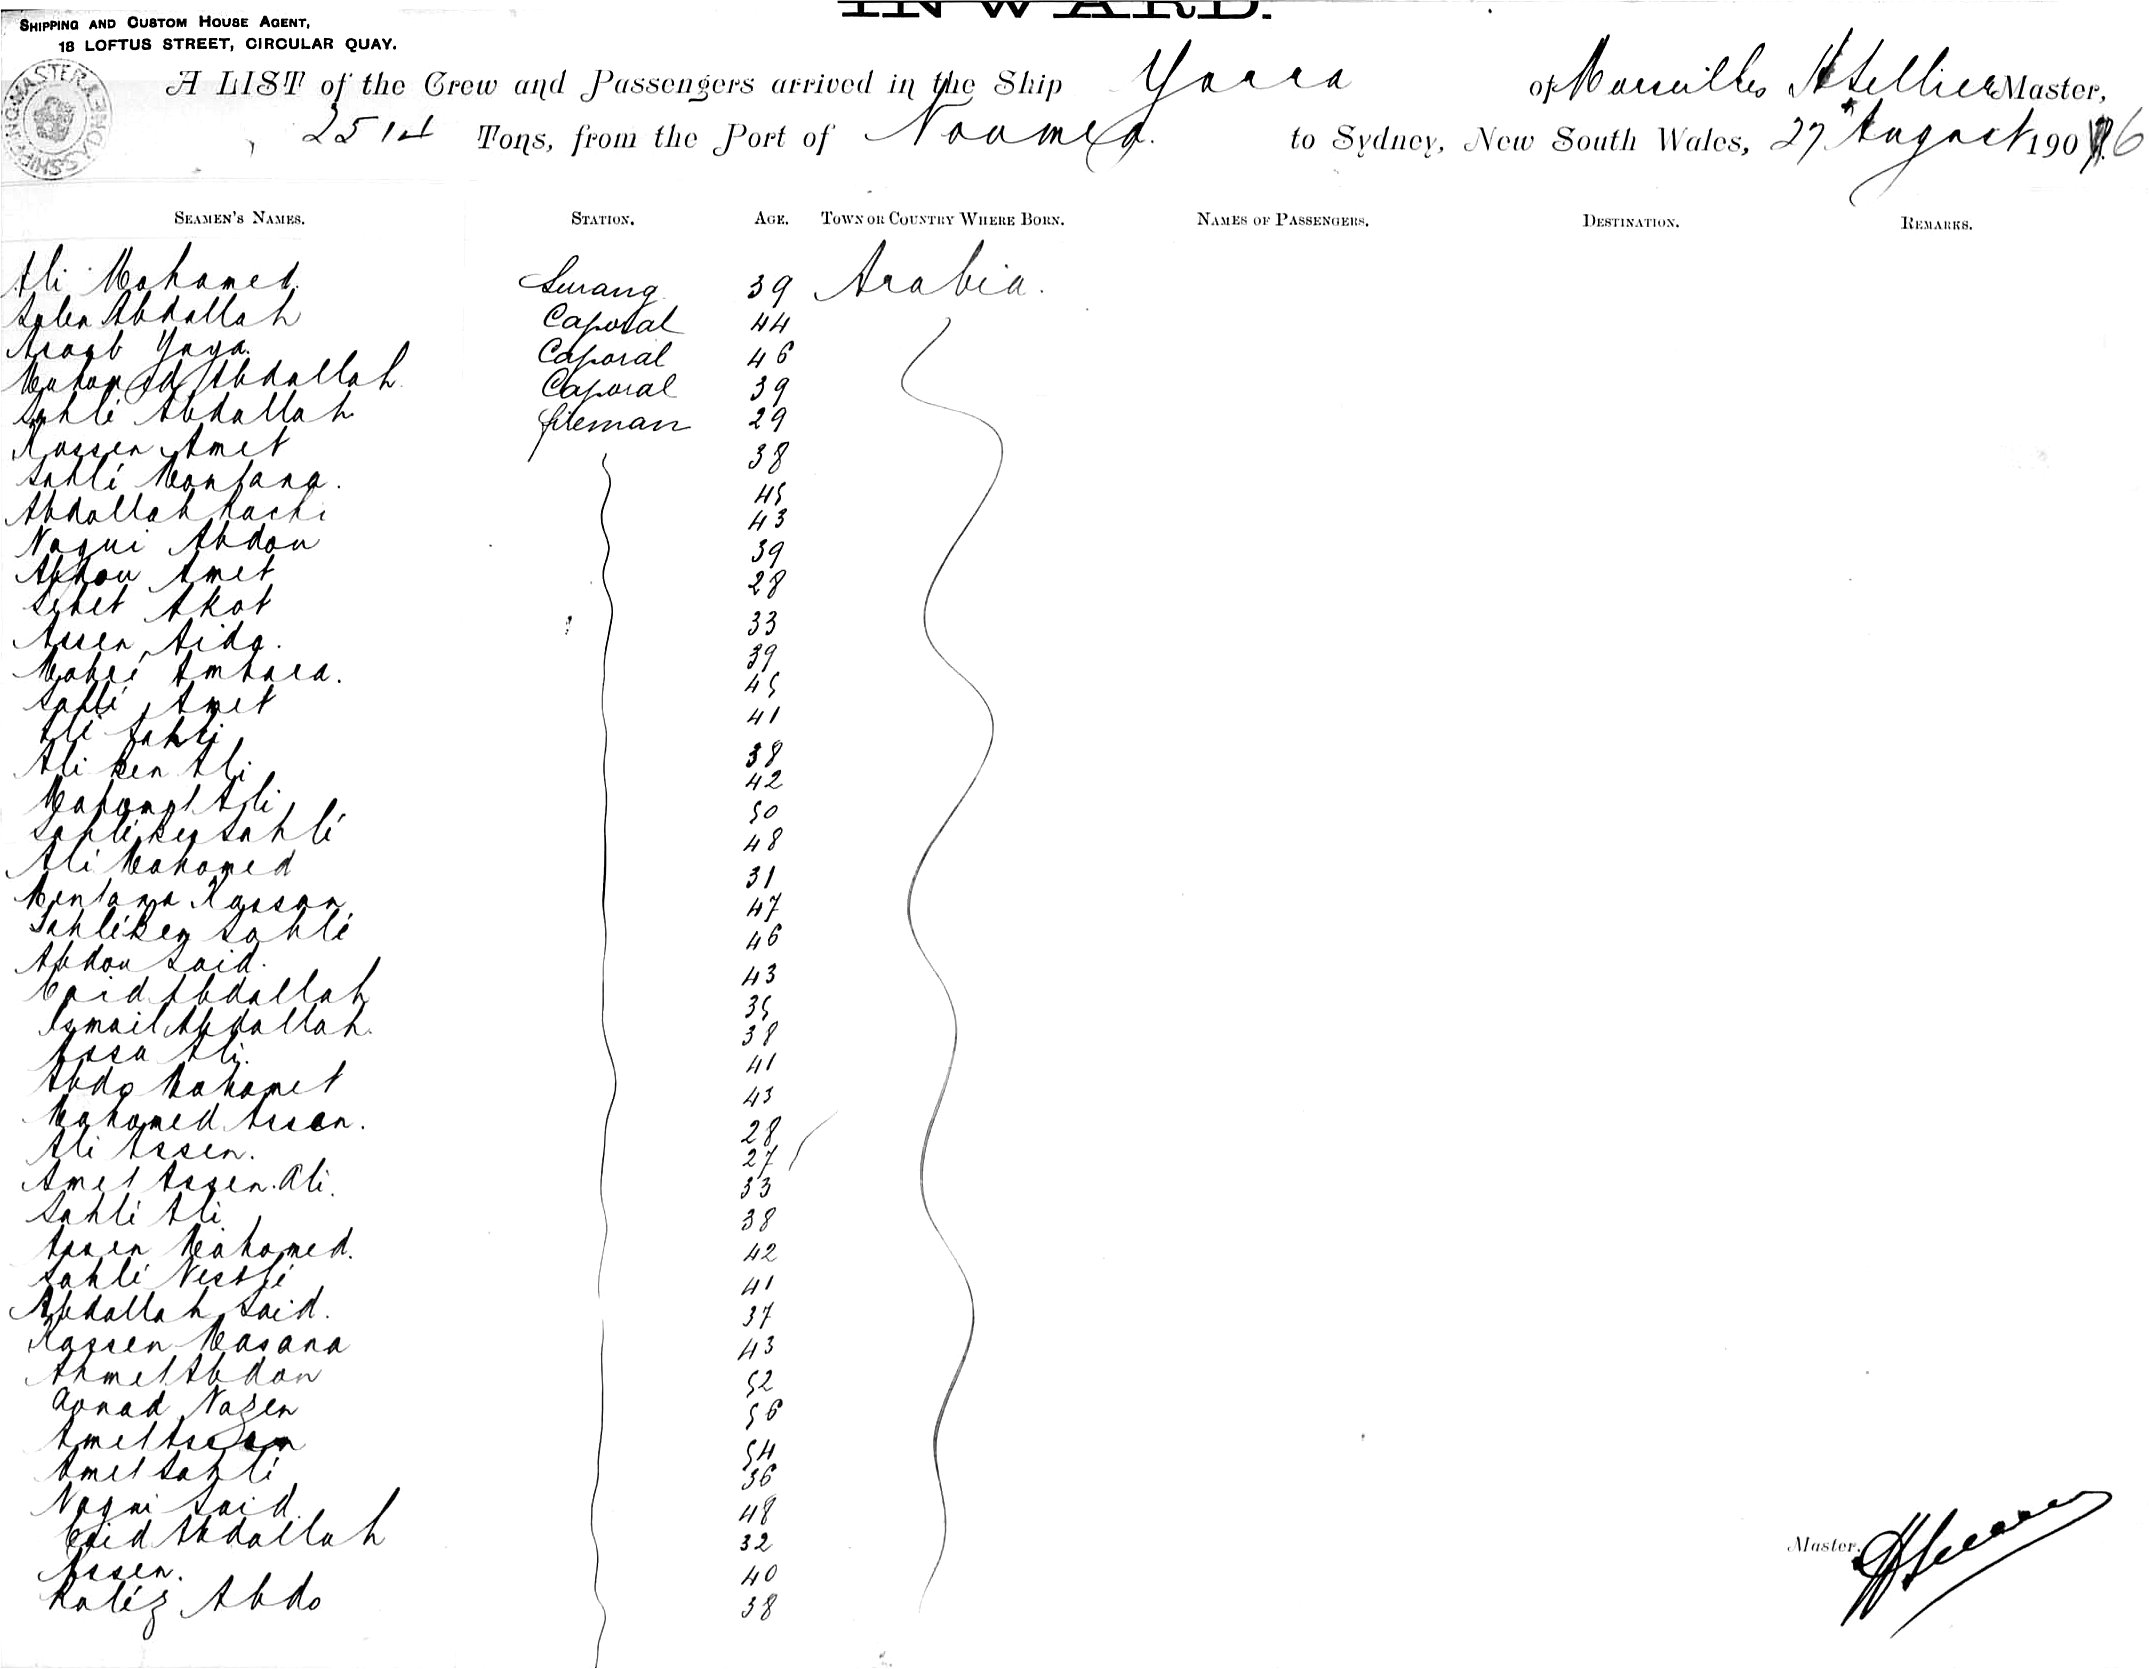 INWARD.
SHIPPING AND CUSTOM HOUSE AGENT,
18 LOFTUS STREET, CIRCULAR QUAY.
A LIST of the Crew and Passengers arrived in the Ship Yarra of Marseilles Sellier Master,
2514 Tons, from the Port of Noumea. to Sydney, New South Wales, 27th August 1906
SEAMEN'S NAMES. STATION. AGE. TOWN OR COUNTRY WHERE BORN. NAMES OF PASSENGERS. DESTINATION. REMARKS.
Ali Mohamed. Surang 39 Arabia.
Salem Abdallah Caporal 44
Yaya. Caporal 46
Mohamed Abdallah. Caporal 39
Sahli Abdallah fireman 29
Kassen Amet 38
Sahli Montana. 45
Abdallah Kachi 43
Nagui Abdou 39
Abdou Amet 28
Sebet Akot 33
Assen Aida. 39
Ambara. 45
Sahli Amet 41
Ali Sahli 38
Ali ben Ali 42
Mahomet Ali 50
Sahli ben Sahli 48
Ali Mahomed 31
Montana Kassan 47
Sahli ben Sahli 46
Abdou Said. 43
Caid Abdallah 35
Ismail Abdallah. 38
Assa Ali. 41
Abdo Mahomet 43
Mahomed Assen. 28
Ali Assen. 27
Amet Assen. Ali. 33
Sahli Ali 38
Assen Mahomed. 42
Sahli 41
Abdallah Said. 37
Kassen Masana 43
Ahmet Abdou 52
Aonad Nazen 56
Amet Assen 54
Amet Sahli 36
Nagui Said. 48
Caid Abdallah 32
Assen. 40
Kaliz Abdo 38
Master.